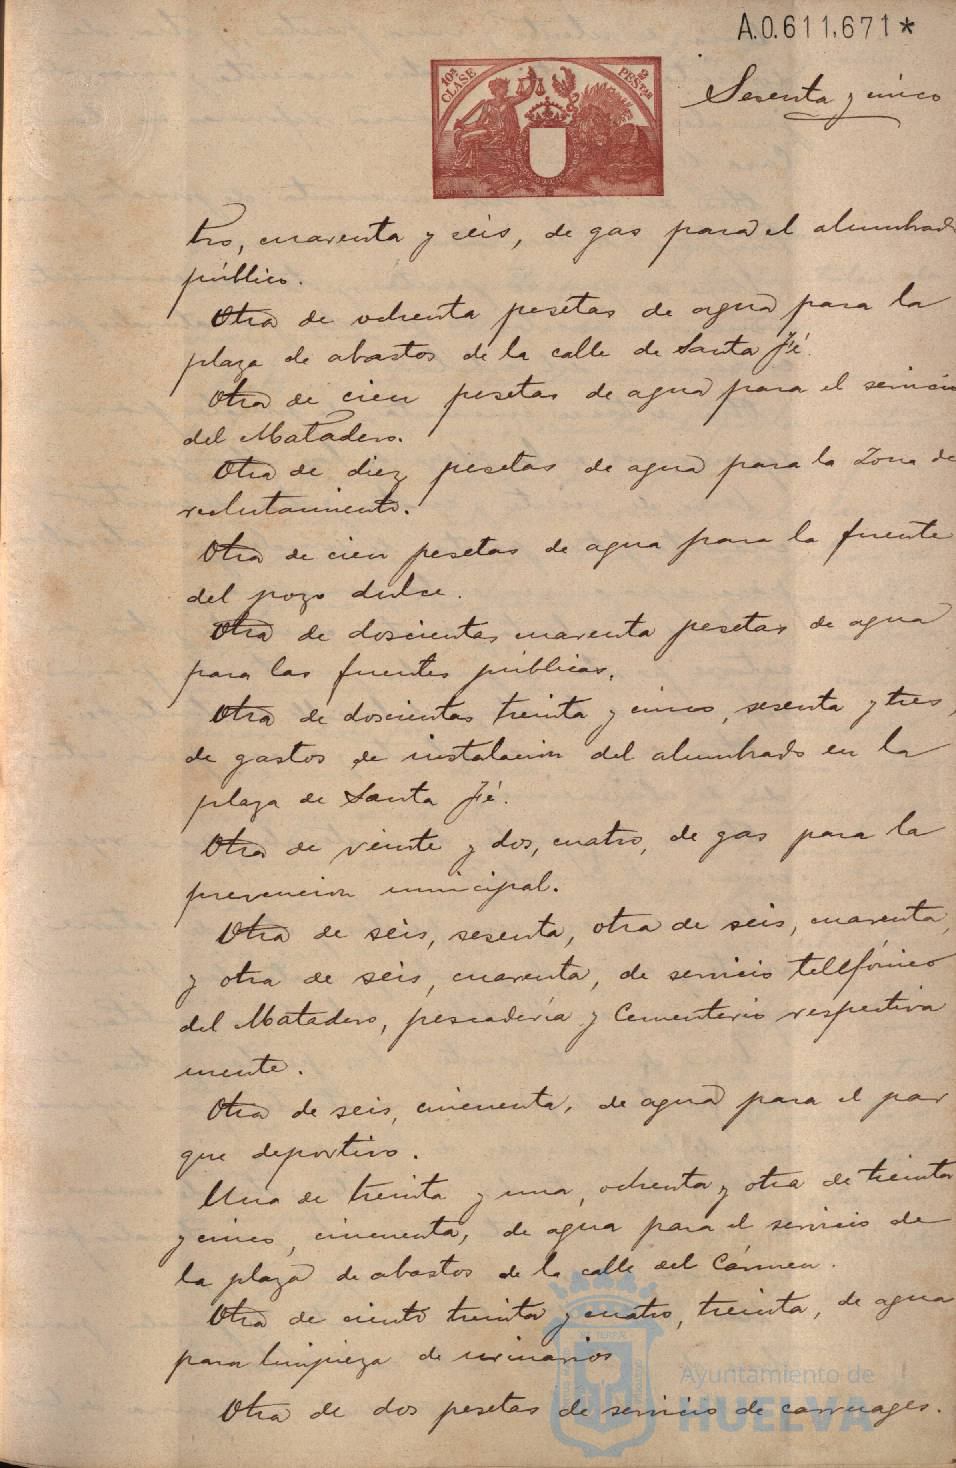 A.0.611.671*
10ª CLASE
2 PESTAS
Sesenta y cinco
tro, cuarenta y seis, de gas para el alumbrado
público.
Otra de ochenta pesetas de agua para la
plaza de abastos de la calle de Santa Fé.
Otra de cien pesetas de agua para el servicio
del Matadero.
Otra de diez pesetas de agua para la Zona de
reclutamiento.
Otra de cien pesetas de agua para la fuente
del pozo dulce.
Otra de doscientas cuarenta pesetas de agua
para las fuentes públicas.
Otra de doscientas treinta y cinco, sesenta y tres,
de gastos de instalacion del alumbrado en la
plaza de Santa Fé.
Otra de veinte y dos, cuatro, de gas para la
prevencion municipal.
Otra de seis, sesenta, otra de seis, cuarenta,
y otra de seis, cuarenta, de servicio telefónico
del Matadero, pescadería y Cementerio respectiva
mente.
Otra de seis, cincuenta, de agua para el par
que deportivo.
Una de treinta y una, ochenta y otra de treinta
y cinco, cincuenta, de agua para el servicio de
la plaza de abastos de la calle del Cármen.
Otra de ciento treinta y cuatro, treinta, de agua
para limpieza de urinarios
Otra de dos pesetas de servicio de carruages.
Ayuntamiento de
HUELVA